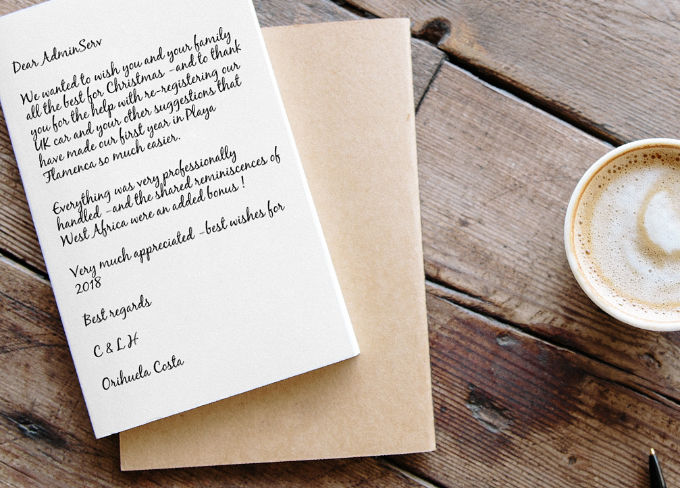 Dear AdminServ
We wanted to wish you and your family
all the best for Christmas -and to thank
you for the help with re-registering our
UK car and your other suggestions that
have made our first year in Playa
Flamenca so much easier.
Everything was very professionally
handled -and the shared reminiscences of
West Africa were an added bonus !
Very much appreciated -best wishes for
2018
Best regards
C & L H
Orihuela Costa